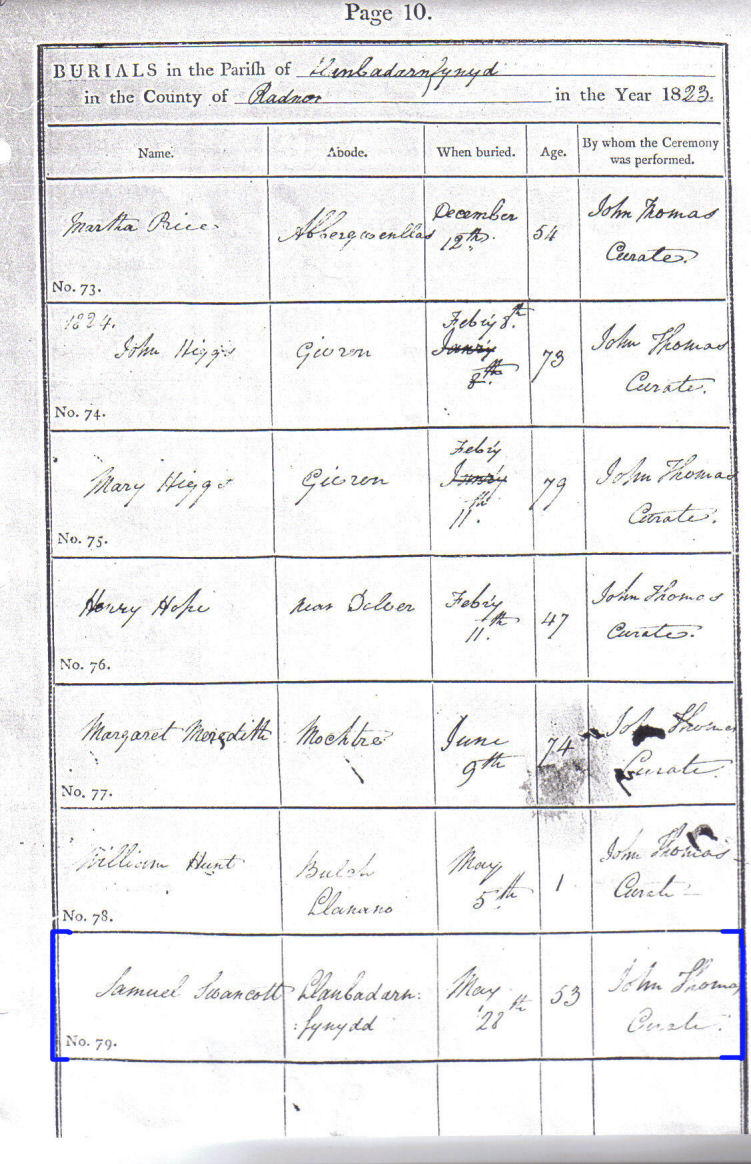 Page 10.
BURIALS in the Parish of Llanbadarnfynyd
in the County of Radnor in the Year 1823.
Name. Abode. When buried. Age. By whom the Ceremony was performed.
Martha Price December 12th. 54 John Thomas Curate.
No. 73.
1824.
John Higgs Givron Febry 8th Janry 8th. 73 John Thomas Curate.
No. 74.
Mary Higgs Givron Febry Janry 11th. 79 John Thomas Curate.
No. 75.
Henry Hope near Dolver Febry 11th. 47 John Thomas Curate.
No. 76.
Margaret Meredith Mochtre June 9th 74 John Thomas Curate.
No. 77.
William Hunt Llanano May 5th 1 John Thomas Curate
No. 78.
Samuel Swancott Llanbadarn: :fynydd May 28th 53 John Thomas Curate.
No. 79.